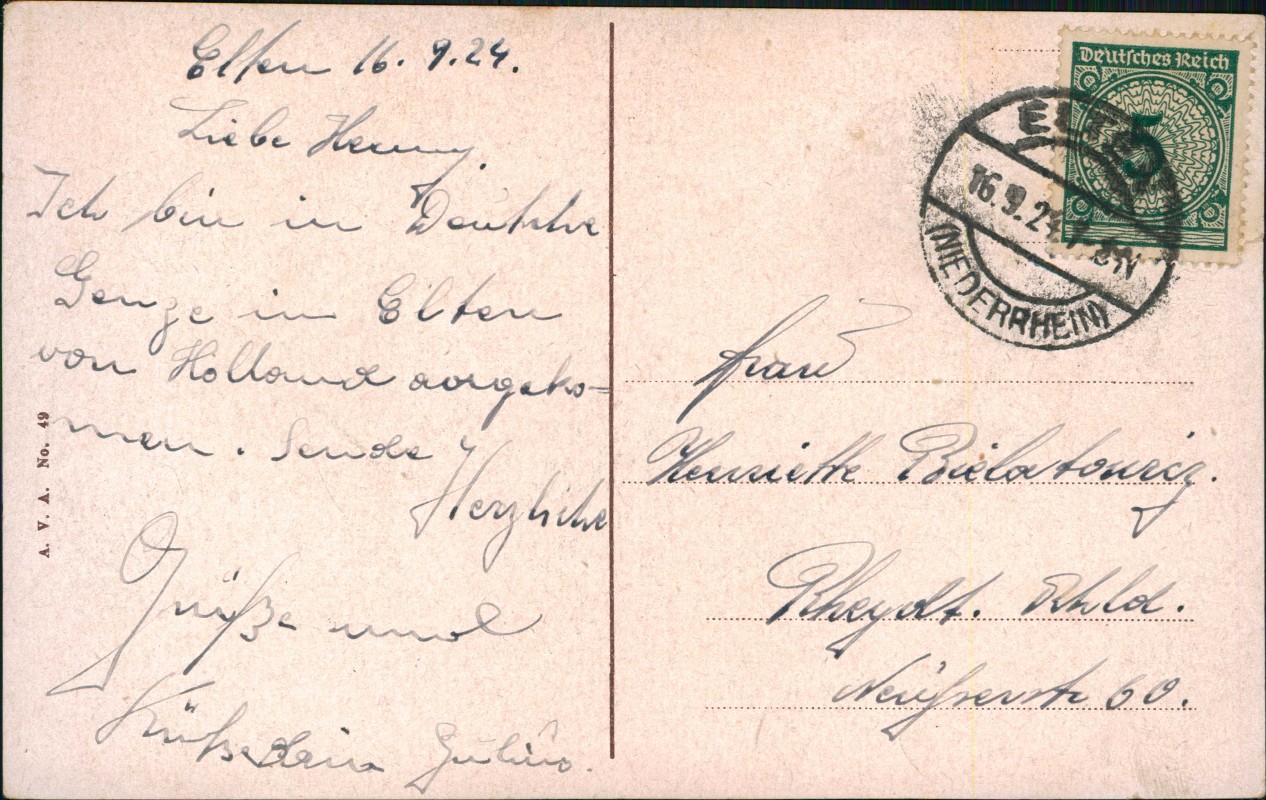 Elten 16.9.24.
Liebe Henny.
Ich bin in Deutsche
Genze in Elten
von Holland aŭsgeko=
men. Sende
Herzliche
Grüße und
Küße dein Julius.
A. V. A. No. 49
Deutsches Reich
5
ELTEN
16.9.24
(NIEDERRHEIN)
Frau
Henriette Bielatowicz.
Rheydt. Rhld.
Neüsserstr 60.